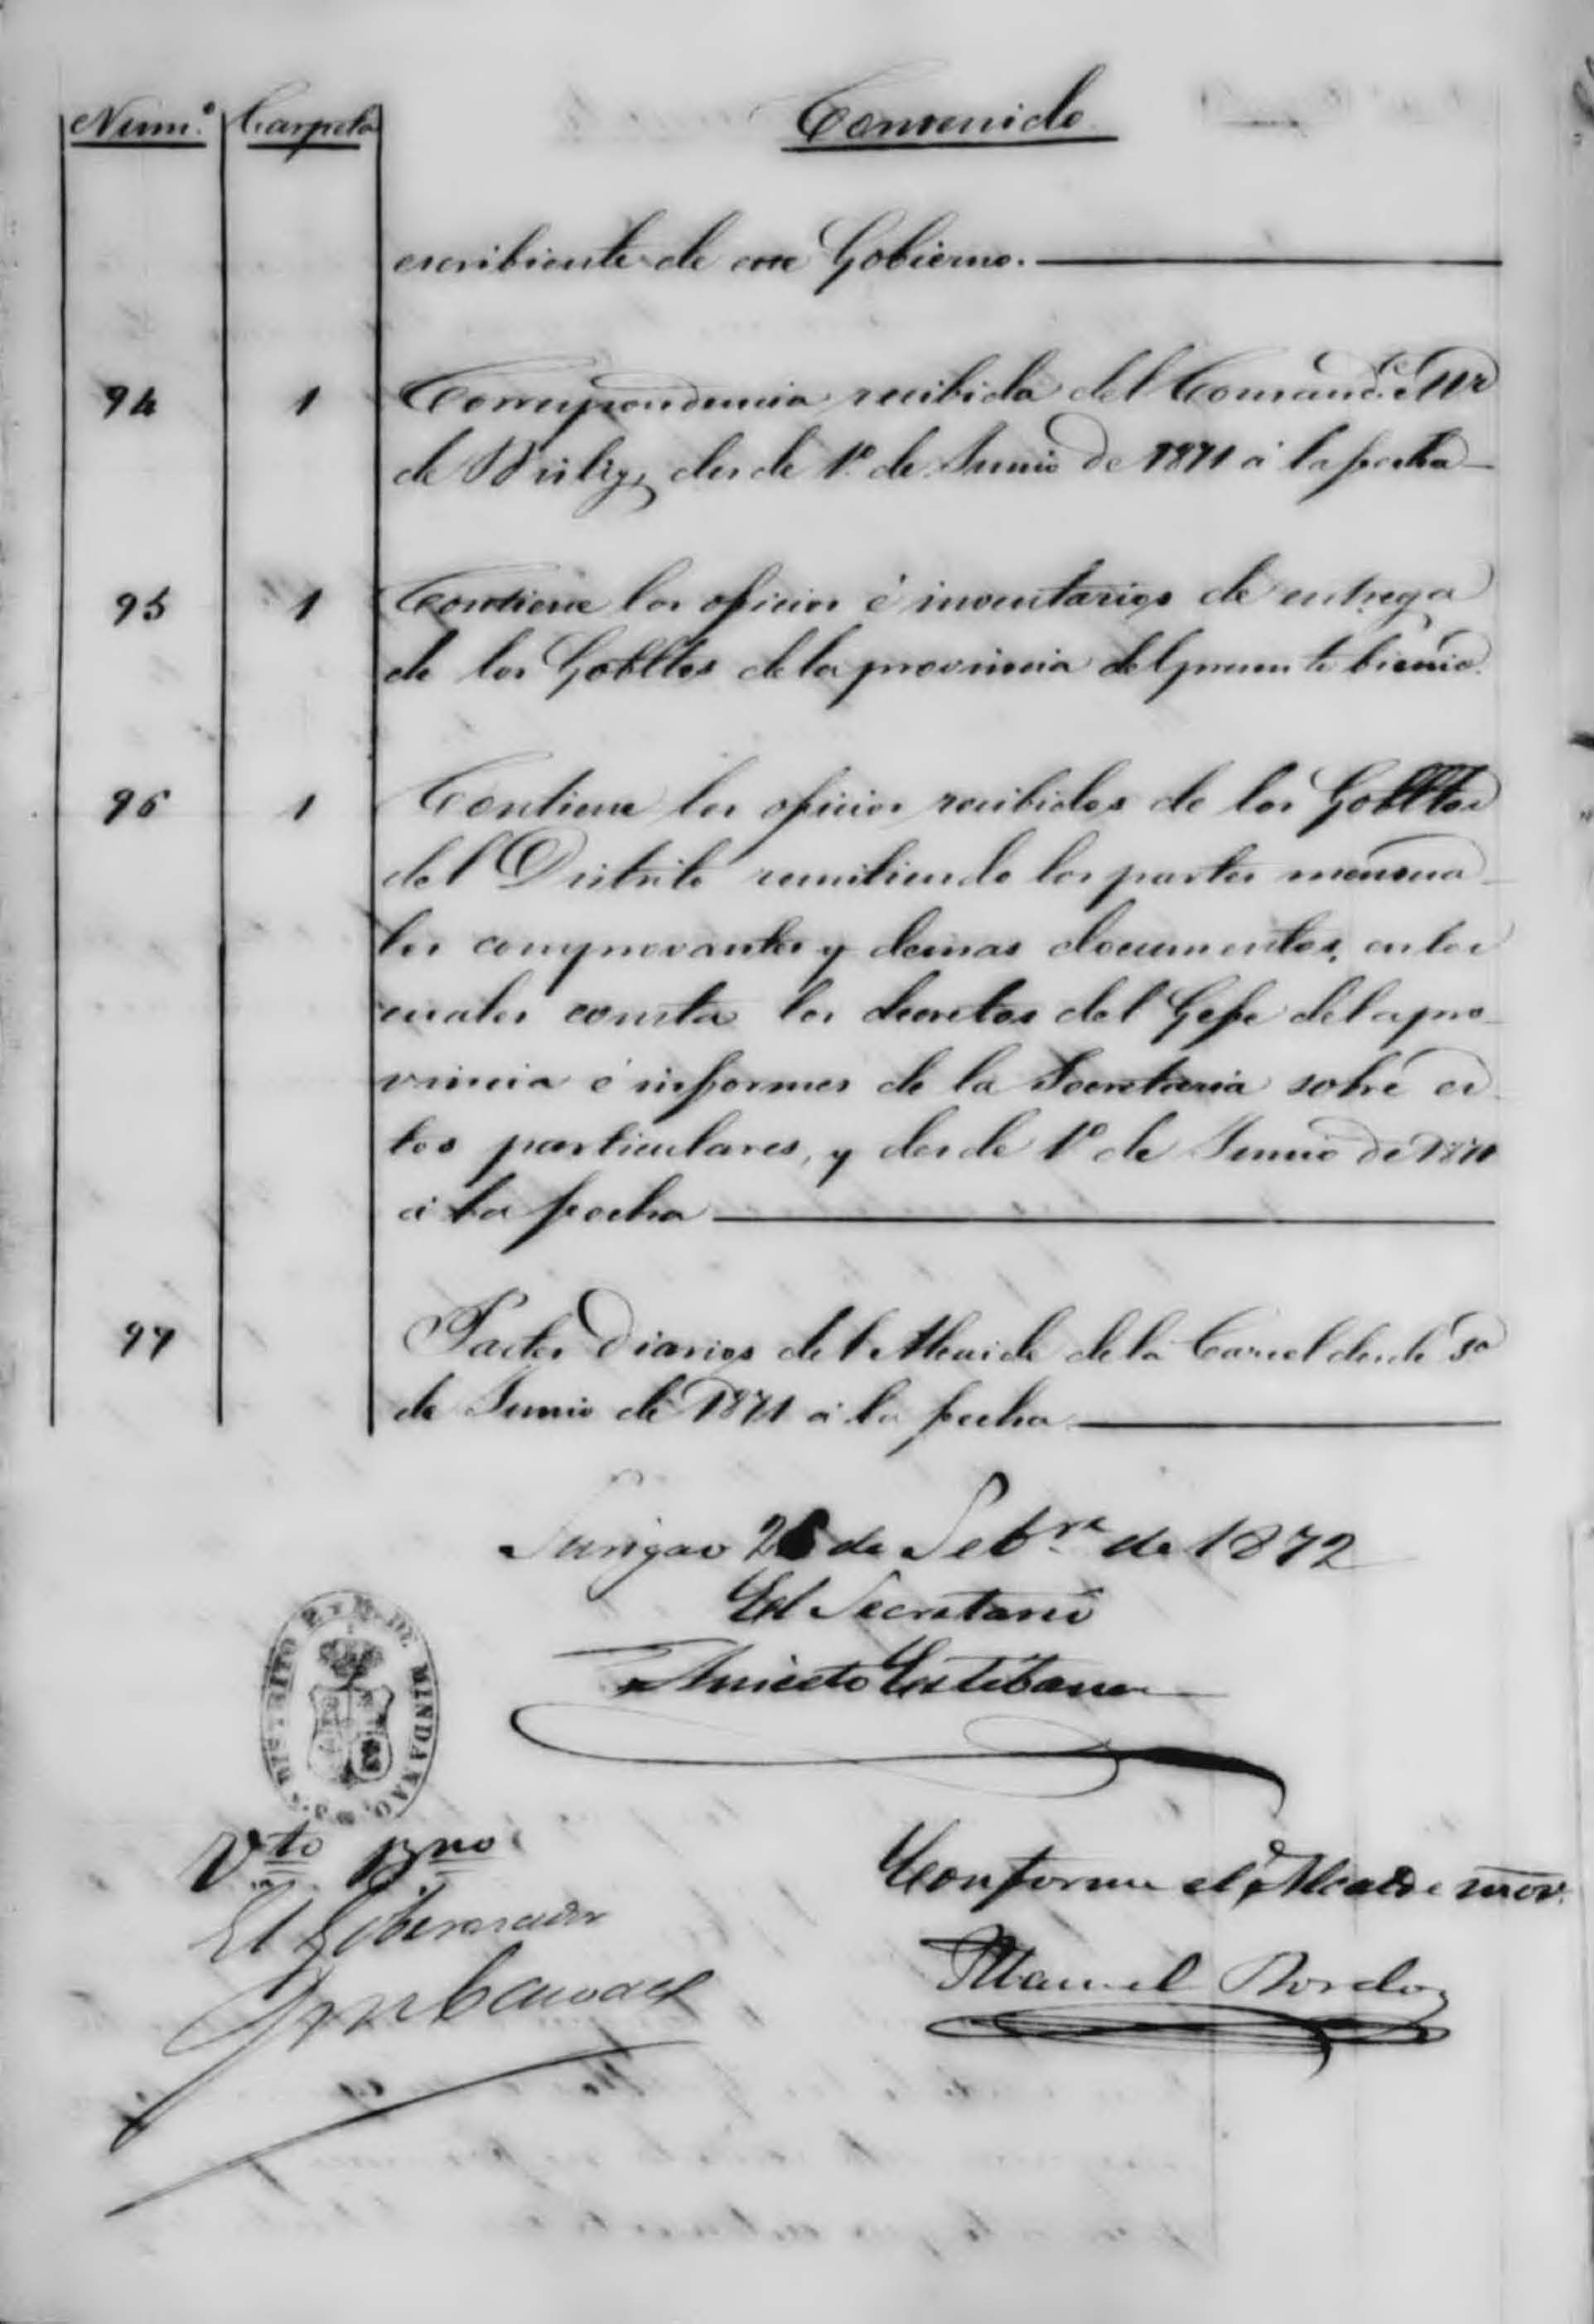 Num.º Carpeta Contenido
escribiente de ese Gobierno.
94 1 Correspondencia recibida del Comand.te Mr
de desde 1º de Junio de 1871 á la fecha
95 1 Contiene los oficios é inventarios de entrega
de los Gobllos de la provincia del presente bienio.
96 1 Contiene los oficios recibidos de los Gobllos
del Distrito remitiendo los partes mensua
les comprovantes y demas documentos, en los
cuales consta los decretos del Gefe de la pro
vincia é informes de la Secretaria sobre es
tos particulares, y desde 1º de Junio de 1871
á la fecha
97 Partes Diarios del Alcaide de la Carcel desde
de Junio de 1871 á la fecha
Surigao de Setbre de 1872
El Secretario
Aniceto Esteban
DISTRITO P. Y M. DE MINDANAO
Vto Bno
El Gobernador
Conforme el Alcalde mor.
Manuel